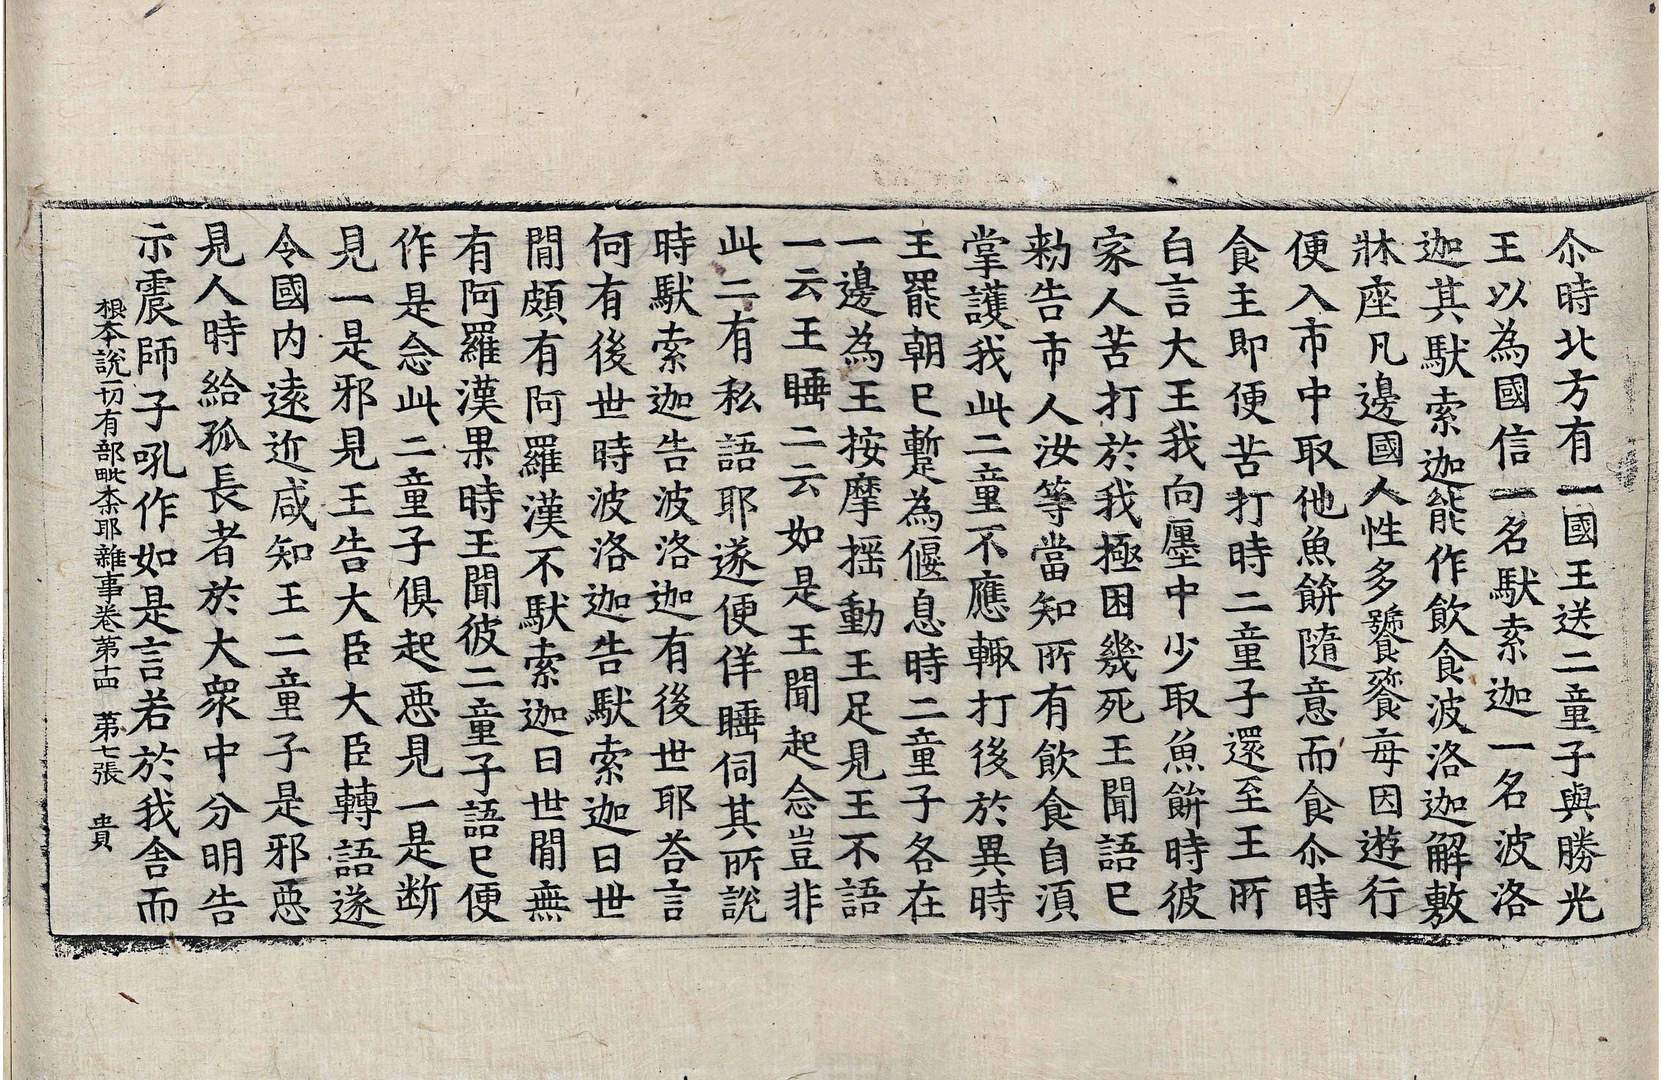 尒時北方有一國王送二童子與勝光
王以為國信一名馱索迦一名波洛
迦其馱索迦能作飲食波洛迦解敷
牀座凡邊國人性多饕餮每因遊行
便入市中取他魚餅隨意而食尒時
食主即便苦打時二童子還至王所
白言大王我向㕓中少取魚餅時彼
家人苦打於我極困幾死王聞語已
勑告市人汝等當知所有飲食自須
掌護我此二童不應輙打後於異時
王罷朝已蹔為偃息時二童子各在
一邊為王按摩揺動王足見王不語
一云王睡二云如是王聞起念豈非
此二有私語耶遂便佯睡伺其所說
時馱索迦告波洛迦有後世耶荅言
何有後世時波洛迦告馱索迦曰世
閒頗有阿羅漢不馱索迦曰世閒無
有阿羅漢果時王聞彼二童子語已便
作是念此二童子俱起惡見一是断
見一是邪見王告大臣大臣轉語遂
令國内逺近咸知王二童子是邪惡
見人時給孤長者於大衆中分明告
示震師子吼作如是言若於我舍而
根本說一切有部毗柰耶雜事卷第十四 第七張 貴